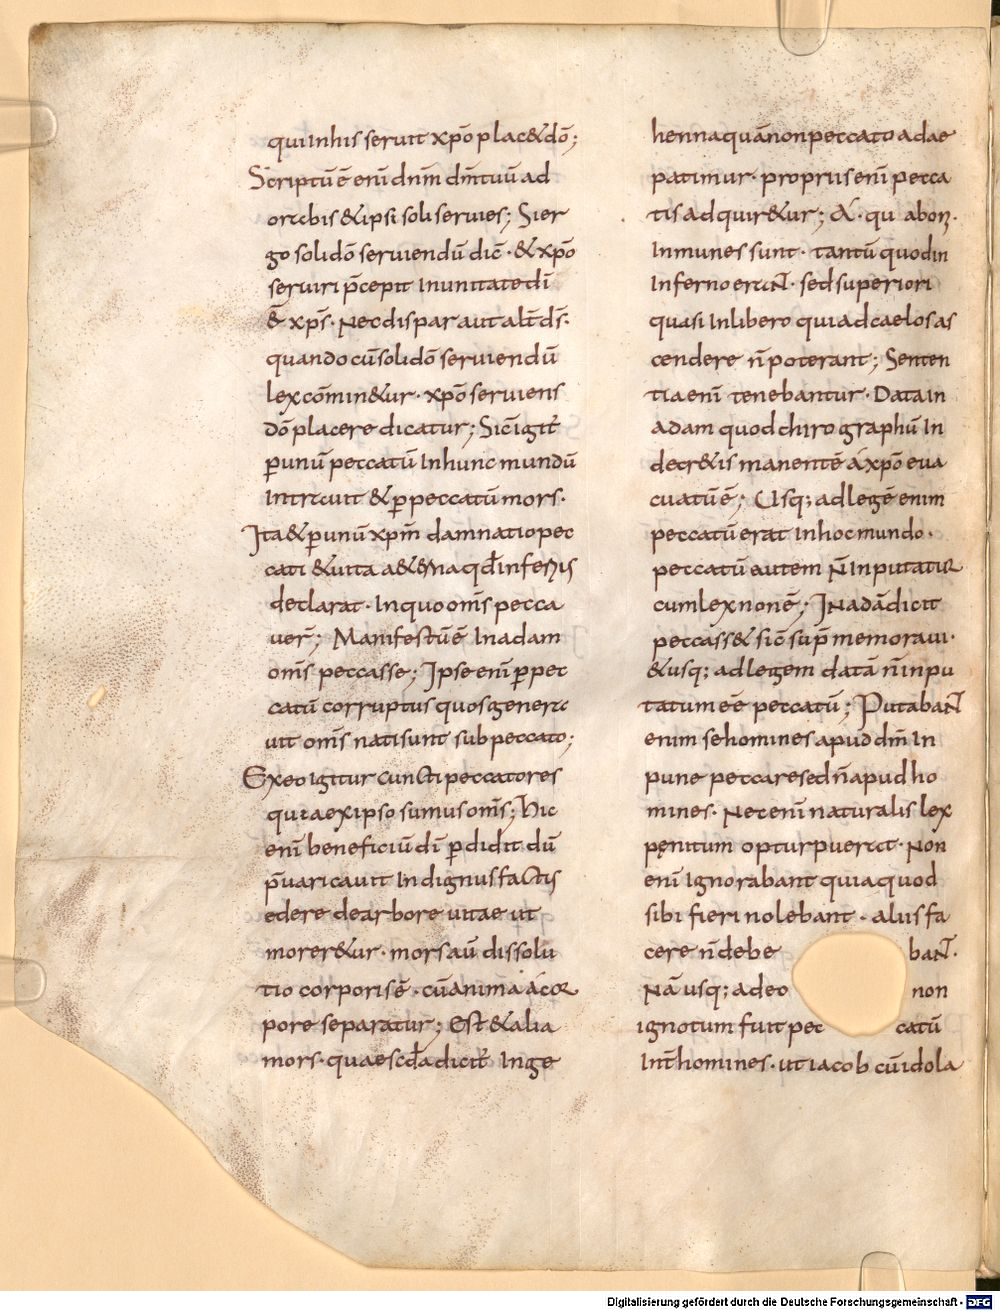 qui Inhis seruit xp̄o plac&dō;
Scriptū ē enī dn̄m dm̄ tuū ad
orabis &ipsi soli seruies; Si er
go soli dō seruiendū dic̄ · & xp̄o
seruiri p̄cepit Inunitate dī
ē xp̄s · Nec dispar aut alt̄ d̄s ·
quando cū soli dō seruiendū
lex cōmin&ur · xp̄o seruiens
dō placere dicatur; Sic̄ igit̄
p̱ unū peccatū Inhunc mundū
Intrauit & p̱ peccatū mors ·
Ita & p̱ unū xpm̄ damnatio pec
cati & uita a&erna qd̄ inferius
declarat · In quo om̄s pecca
uer̄; Manifestū ē In adam
om̄s peccasse; Ipse enī p̱ pec
catū corruptus quos genera
uit om̄s nati sunt sub peccato;
Ex eo igitur cuncti peccatores
quia ex ipso sumus om̄s; hic
enī beneficiū dī p̱didit dū
p̄uaricauit Indignus factus
edere de arbore uitae ut
morer&ur · mors au̅ dissolu
tio corporis ē · cū anima á cor
pore separatur; Est & alia
mors · quae scd̄a dicit̄ Inge
henna quā non peccato adae
patimur · propriis enī pecca
tis adquir&ur; A · qu abon ·
Inmunes sunt · tantū quod in
Inferno eraNT · sed superiori
quasi In libero qui ad caelos as
cendere n̄ poterant; Senten
tia enī tenebantur · Data In
adam quod chirographū In
decr&is manentē á xp̄o eua
cuatū ē; Usq; ad legē enim
peccatū erat In hoc mundo ·
peccatū autem N̄ Inputatur
cum lex non ē; In adā dicit
peccass& sic̄ sup̄ memoraui ·
& usq; ad legem datā n̄ inpu
tatum eē peccatū; PutabaNT
enim se homines apud dm̄ In
pune peccare sed n̄ apud ho
mines · Nec enī naturalis lex
penitum opturpuerat · Non
enī Ignorabant quia quod
sibi fieri nolebant · aliis fa
cere n̄ debe baNT ·
Nā usq; adeo non
ignotum fuit pec catū
Int̄ homines · ut iacob cū idola